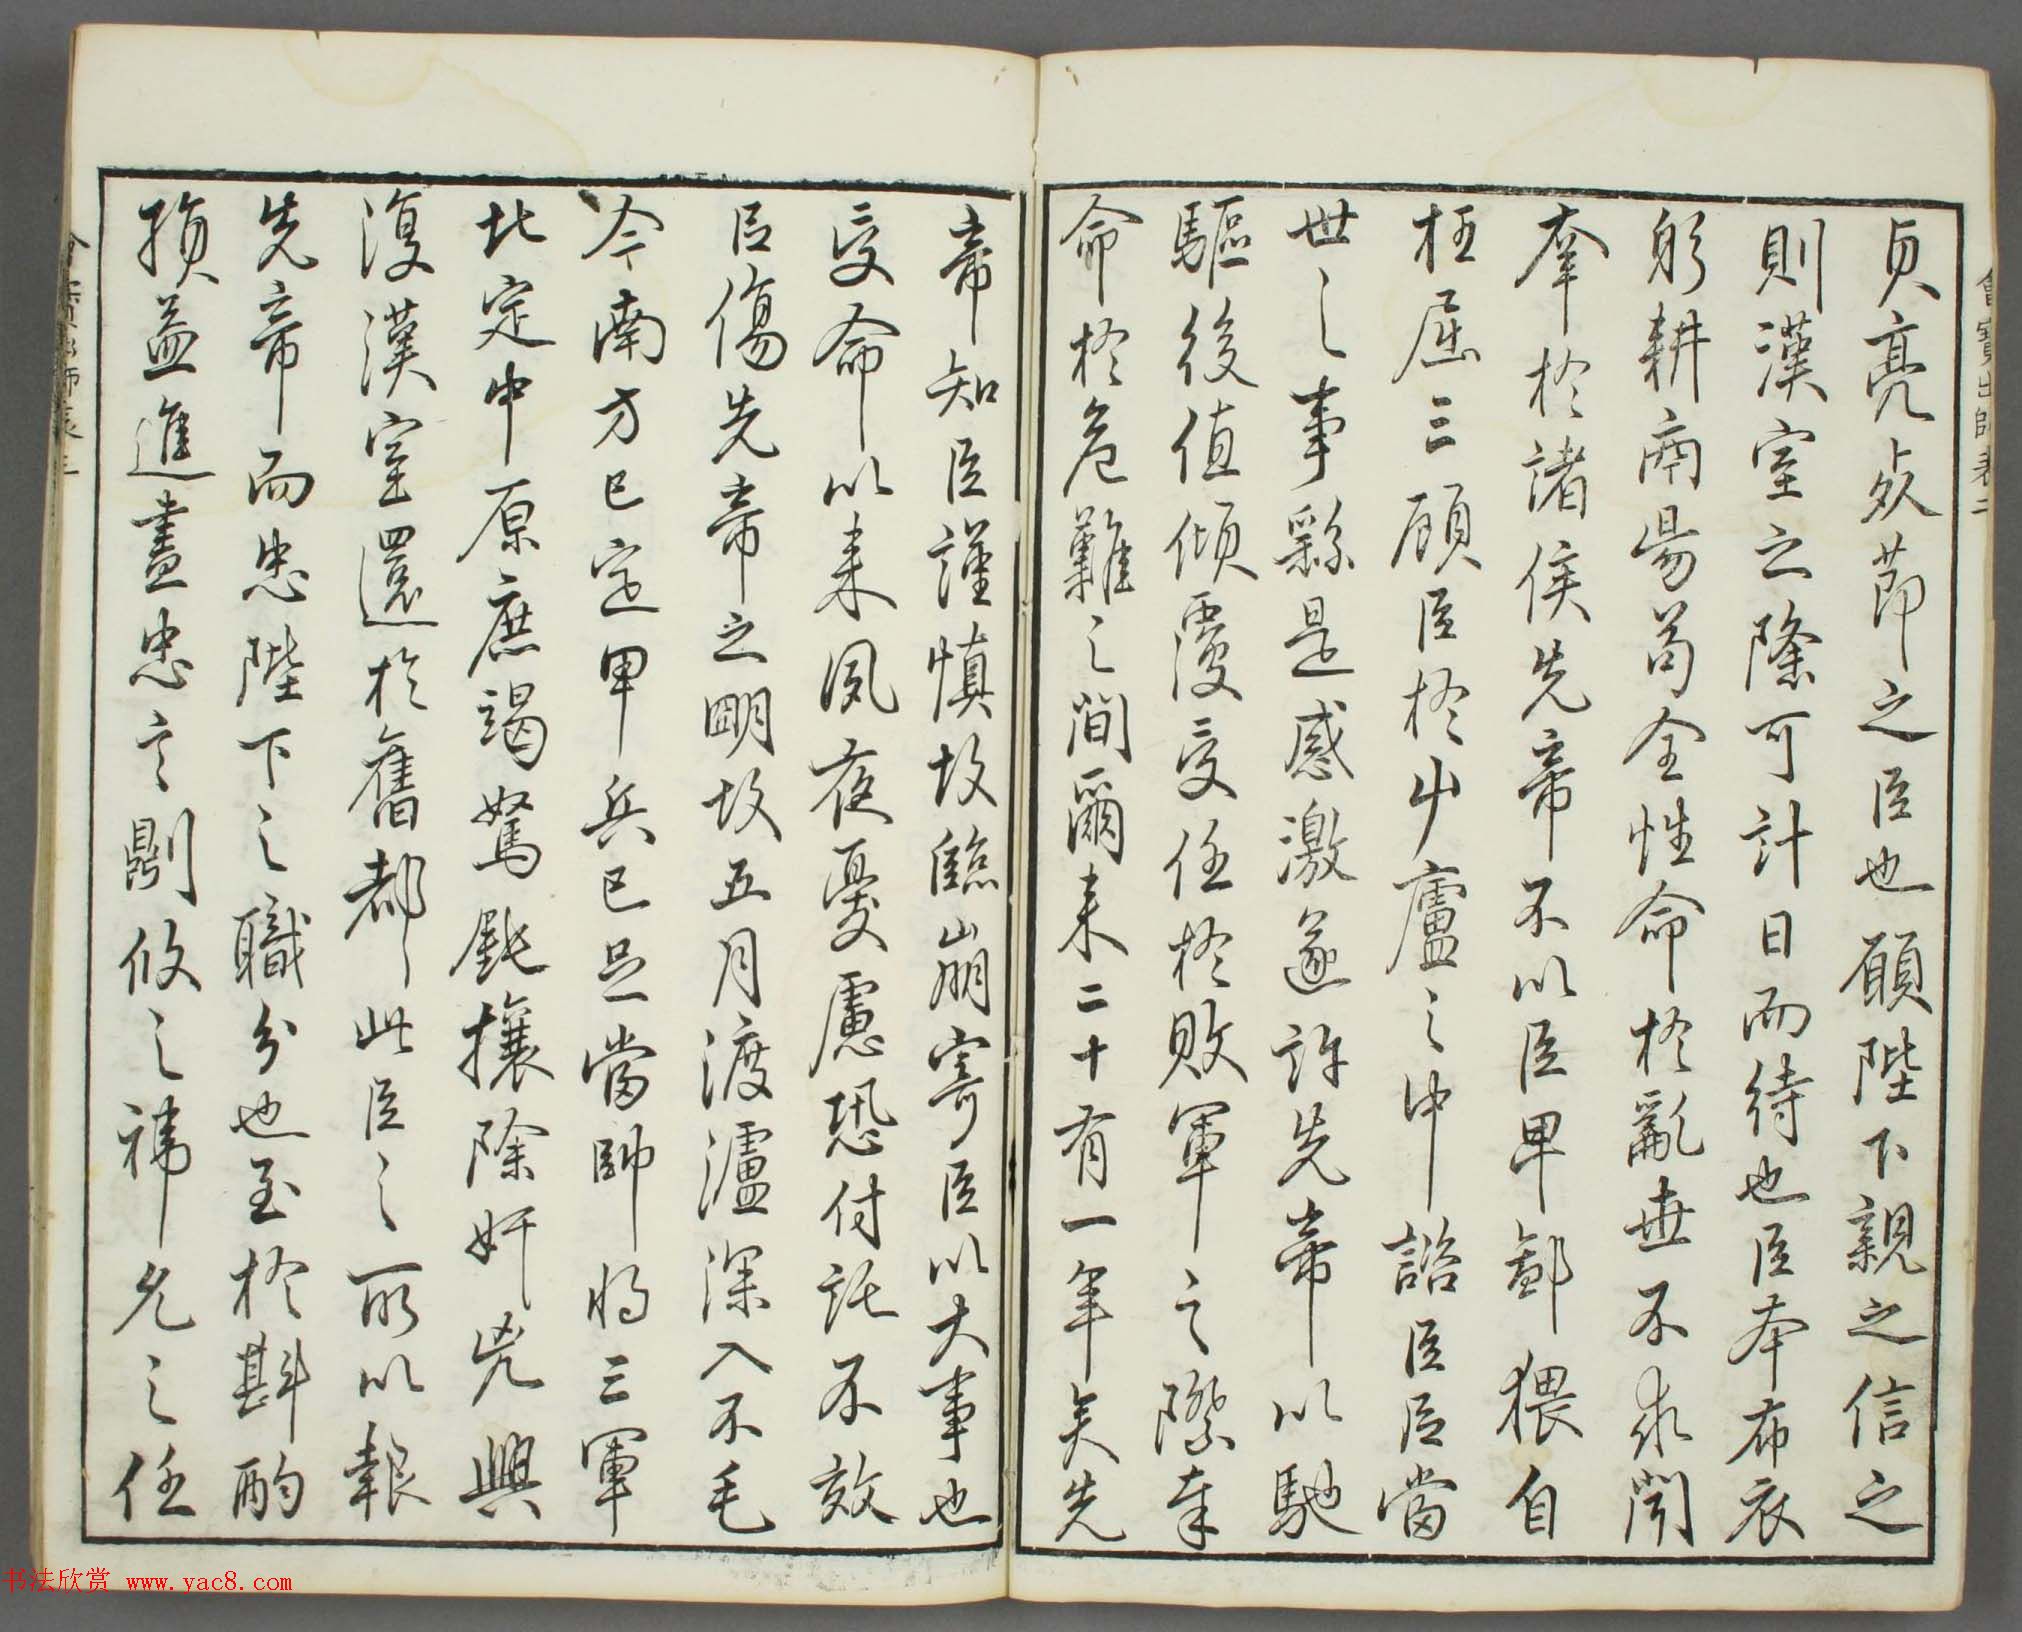 會寶出師表二
貞亮死節之臣也願陛下親之信之
則漢室之隆可計日而待也臣本布衣
躬耕南昜苟全性命於亂世不求聞
羍於諸侯先帝不以臣卑鄙猥自
枉屈三顧臣於屮廬之中諮臣臣當
世之事繇是感激遂許先帝以馳
驅後值傾覆受任於敗軍之際奉
命於危難之間爾來二十有一年矣先
帝知臣謹慎故臨崩寄臣以大事也
受命以來夙夜憂慮恐付託不效
臣傷先帝之明故五月渡瀘深入不毛
今南方已定甲兵已足當帥將三軍
北定中原庶竭駑鈍攘除奸兇興
復漢室還於舊都此臣之所以報
先帝而忠陛下之職分也至於斟酌
損益進盡忠言則攸之禕允之任
书法欣赏 www.yac8.com